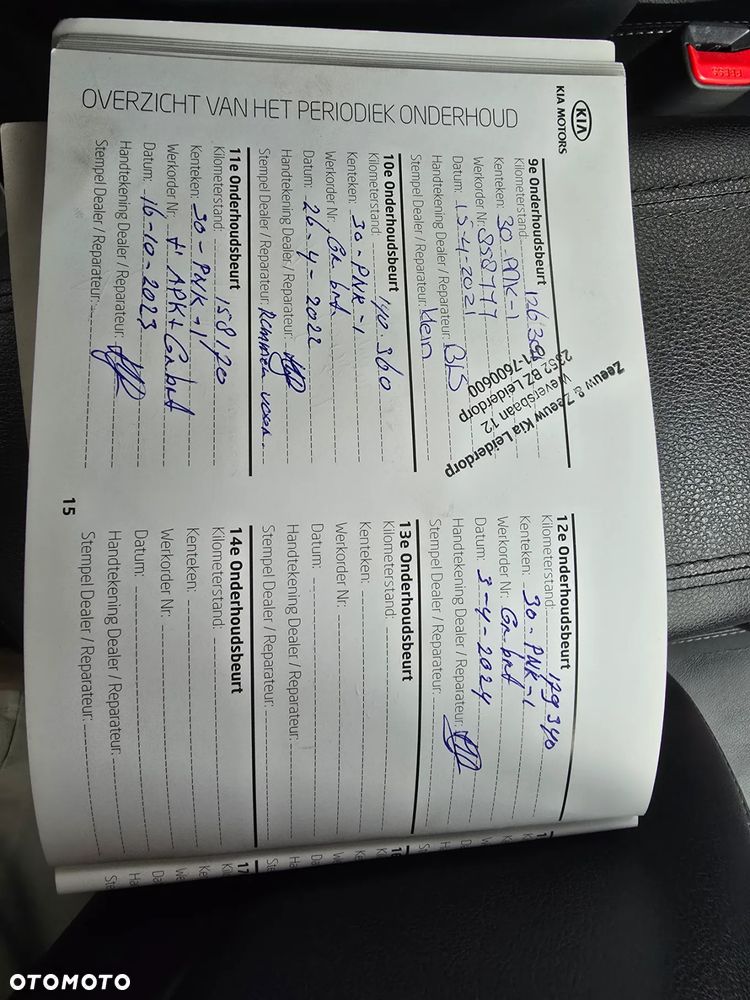 KIA
KIA MOTORS
OVERZICHT VAN HET PERIODIEK ONDERHOUD
9e Onderhoudsbeurt
Kilometerstand:
Kenteken: 30-PNK-1
Werkorder Nr:
Datum: 15-4-2021
Handtekening Dealer / Reparateur:
Stempel Dealer / Reparateur: Klein
Zeeuw & Zeeuw Kia Leiderdorp
Weversbaan 12
2352 BZ Leiderdorp
71-7600600
10e Onderhoudsbeurt
Kilometerstand: 140 360
Kenteken: 30-PNK-1
Werkorder Nr: Gr. brt
Datum: 26-4-2022
Handtekening Dealer / Reparateur:
Stempel Dealer / Reparateur: Remmen voor.
11e Onderhoudsbeurt
Kilometerstand: 158170
Kenteken: 30-PNK-1
Werkorder Nr: + APK + Gr. brt
Datum: 16-10-2023
Handtekening Dealer / Reparateur:
Stempel Dealer / Reparateur:
12e Onderhoudsbeurt
Kilometerstand: 179 340
Kenteken: 30-PNK-1
Werkorder Nr: Gr. brt
Datum: 3-4-2024
Handtekening Dealer / Reparateur:
Stempel Dealer / Reparateur:
13e Onderhoudsbeurt
Kilometerstand:
Kenteken:
Werkorder Nr:
Datum:
Handtekening Dealer / Reparateur:
Stempel Dealer / Reparateur:
14e Onderhoudsbeurt
Kilometerstand:
Kenteken:
Werkorder Nr:
Datum:
Handtekening Dealer / Reparateur:
Stempel Dealer / Reparateur:
15
PRESS
OTOMOTO